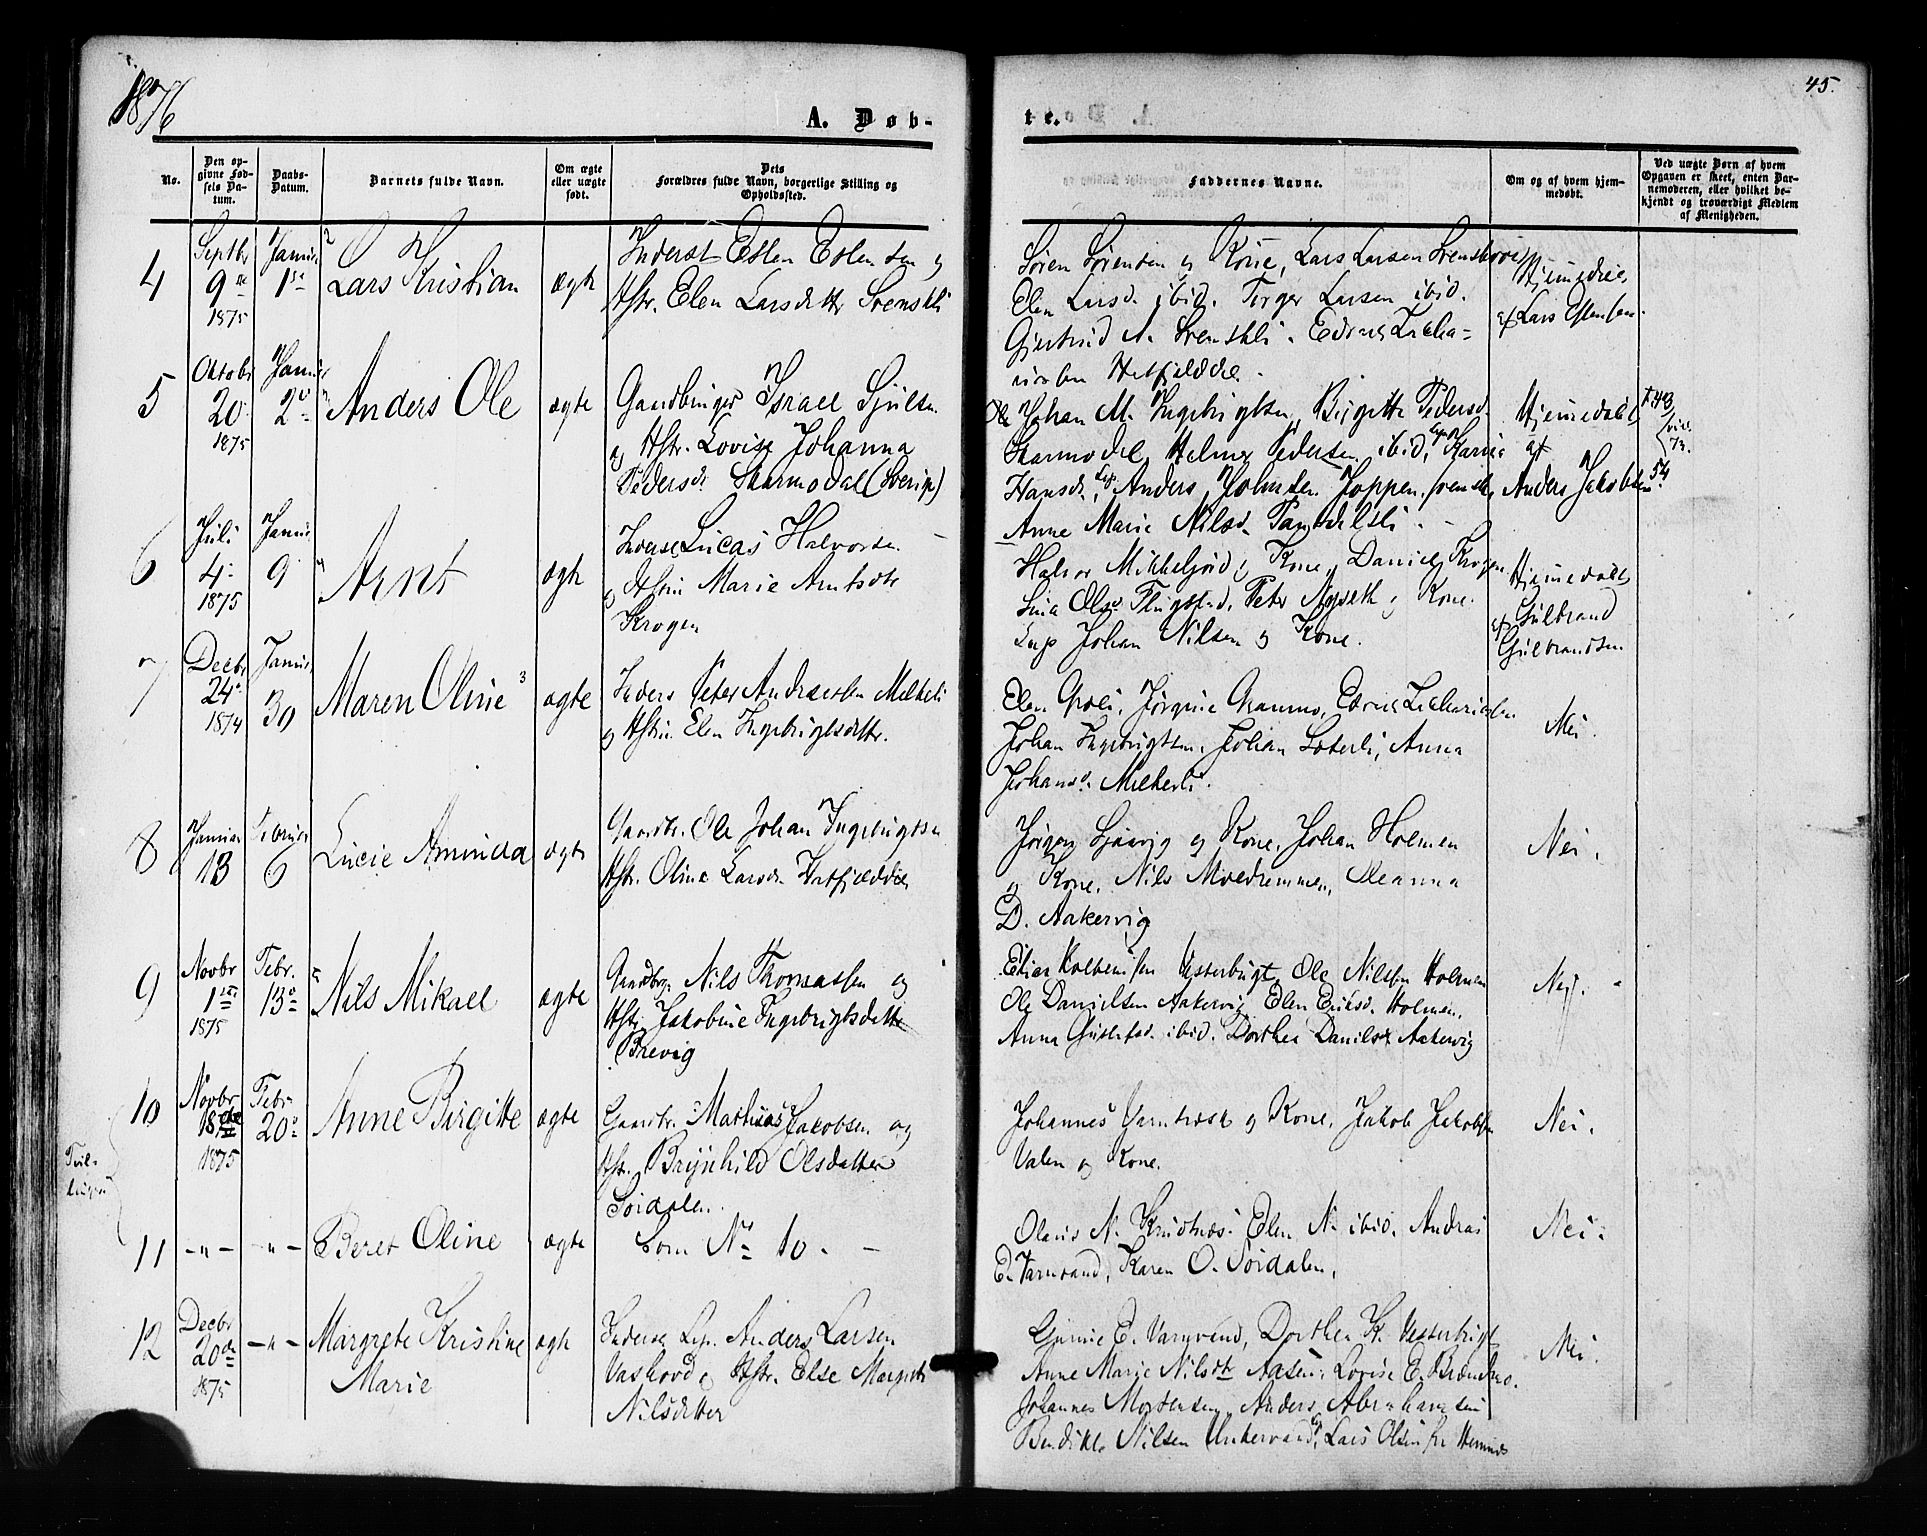 1876
45.
A. Døb-
te.
No.
Den op-
givne Fød-
sels Da-
tum.
Daabs-
Datum.
Barnets fulde Navn.
Om ægte
eller uægte
født.
Dets
Forældres fulde Navn, borgerlige Stilling og
Opholdssted.
Faddernes Navne.
Om og af hvem hjem-
medøbt.
Ved uægte Børn af hvem
Opgaven er skeet, enten Bar-
nemoderen, eller hvilket be-
kjendt og troværdigt Medlem
af Menigheden.
4
Septbr
9
1875
Januar
1
Lars Kristian
ægte
Inderst Esten Estensen og
Hstr. Elen Larsdttr Svenskli
Søren Sørensen og Kone, Lars Larsen
Elen Larsd. ibid. Torger Larsen ibid.
Gjertrud N. Svenskli. Edvius Zacha-
riasen Hatfjelddal.
Hjemmedøbt
af Lars Estensen.
5
Oktobr
20
1875
Januar
2
Anders Ole
ægte
Gaardbruger Israel Sjulsen
og Hstr. Lovise Johanna
Pedersdr Skarmodal (Sverige)
Ole Johan M. Ingebrigtsen, Birgitte Pedersd.
Skarmodal, Helmer Pedersen ibid, Karin
Hansd., Anders Johnsen Joppen, svensk,
Anne Marie Nilsd.
Hjemmedøbt
af
Anders Jakobsen
6
Juli
4
1875
Januar
9
Arnt
ægte
Inderst Lucas Halvorsen
og Hstru Marie Arntsdtr
Krogen
Halvor Mikkeljord og Kone, Daniel Krogen
Lina Olsd Flugstad, Peter Nyseth og Kone.
Lap Johan Nilsen og Kone.
Hjemmedøbt
af Gulbrand
Gulbrandsen
7
Decbr
24
1874
Januar
30
Maren Oline
ægte
Inders Peter Andreassen Mikkeli
og Hstru. Elen Ingebrigtsdttr.
Elen Groli, Jørgine Granmo, Edvius Zachariassen
Johan Ingebrigtsen, Johan Sæterli, Anna
Johansd. Mikkeli.
Nei.
8
Januar
13
Februar
6
Lucie Aminda
ægte
Gaardbr. Ole Johan Ingebrigtsen
Hstr. Oline Larsd. Hatfjelddal
Jørgen Sjaavig og Kone, Johan Holmen
og Kone, Nils Moedremmen, Oleanna
D. Aakervig
Nei.
9
Novbr
1ste
1875
Febr.
13
Nils Mikael
ægte
Gaardbr. Nils Thomassen og
Hstr. Jakobine Ingebrigtsdatter
Brevig
Elias Vesterbugt, Ole Nilssen Holmen
Ole Danielsen Aakervig, Elen Eriksd. Holmen,
Anna Gustafsd. ibid. Dorthea Danilsd. Aakervig
Nej.
10
Novbr
18
1875
Febr.
20
Anne Birgitte
ægte
Gaardbr. Mathias Jakobsen og
Hstr. Brynhild Olsdatter
Sørdalen.
Johannes Varntræsk og Kone, Jakob Jakobsen
Valen og Kone.
Nei.
Tvil-
linger
11
-"- -"-
Beret Oline
ægte
Som No 10.
Olaus N. Krudtnæs, Elen N. ibid. Andrea
E. Varnvand, Karen O. Sørdalen.
Nei.
12
Decbr
20de
1875
-"-
Margrete Kristine
Marie
ægte
Inderst Lap. Anders Larsen
Vashoved og Hstr. Else Margrete
Nilsdatter
Gurine E. Varnvand, Dorthea K. Vesterbugt
Anne Marie Nilsdtr Aasen, Lovise E.
Johannes Mortensen, Anders Abrahamsen
Bendikte Nilsen Unkervand, Lars Olsen fra Hemnes
Nei.